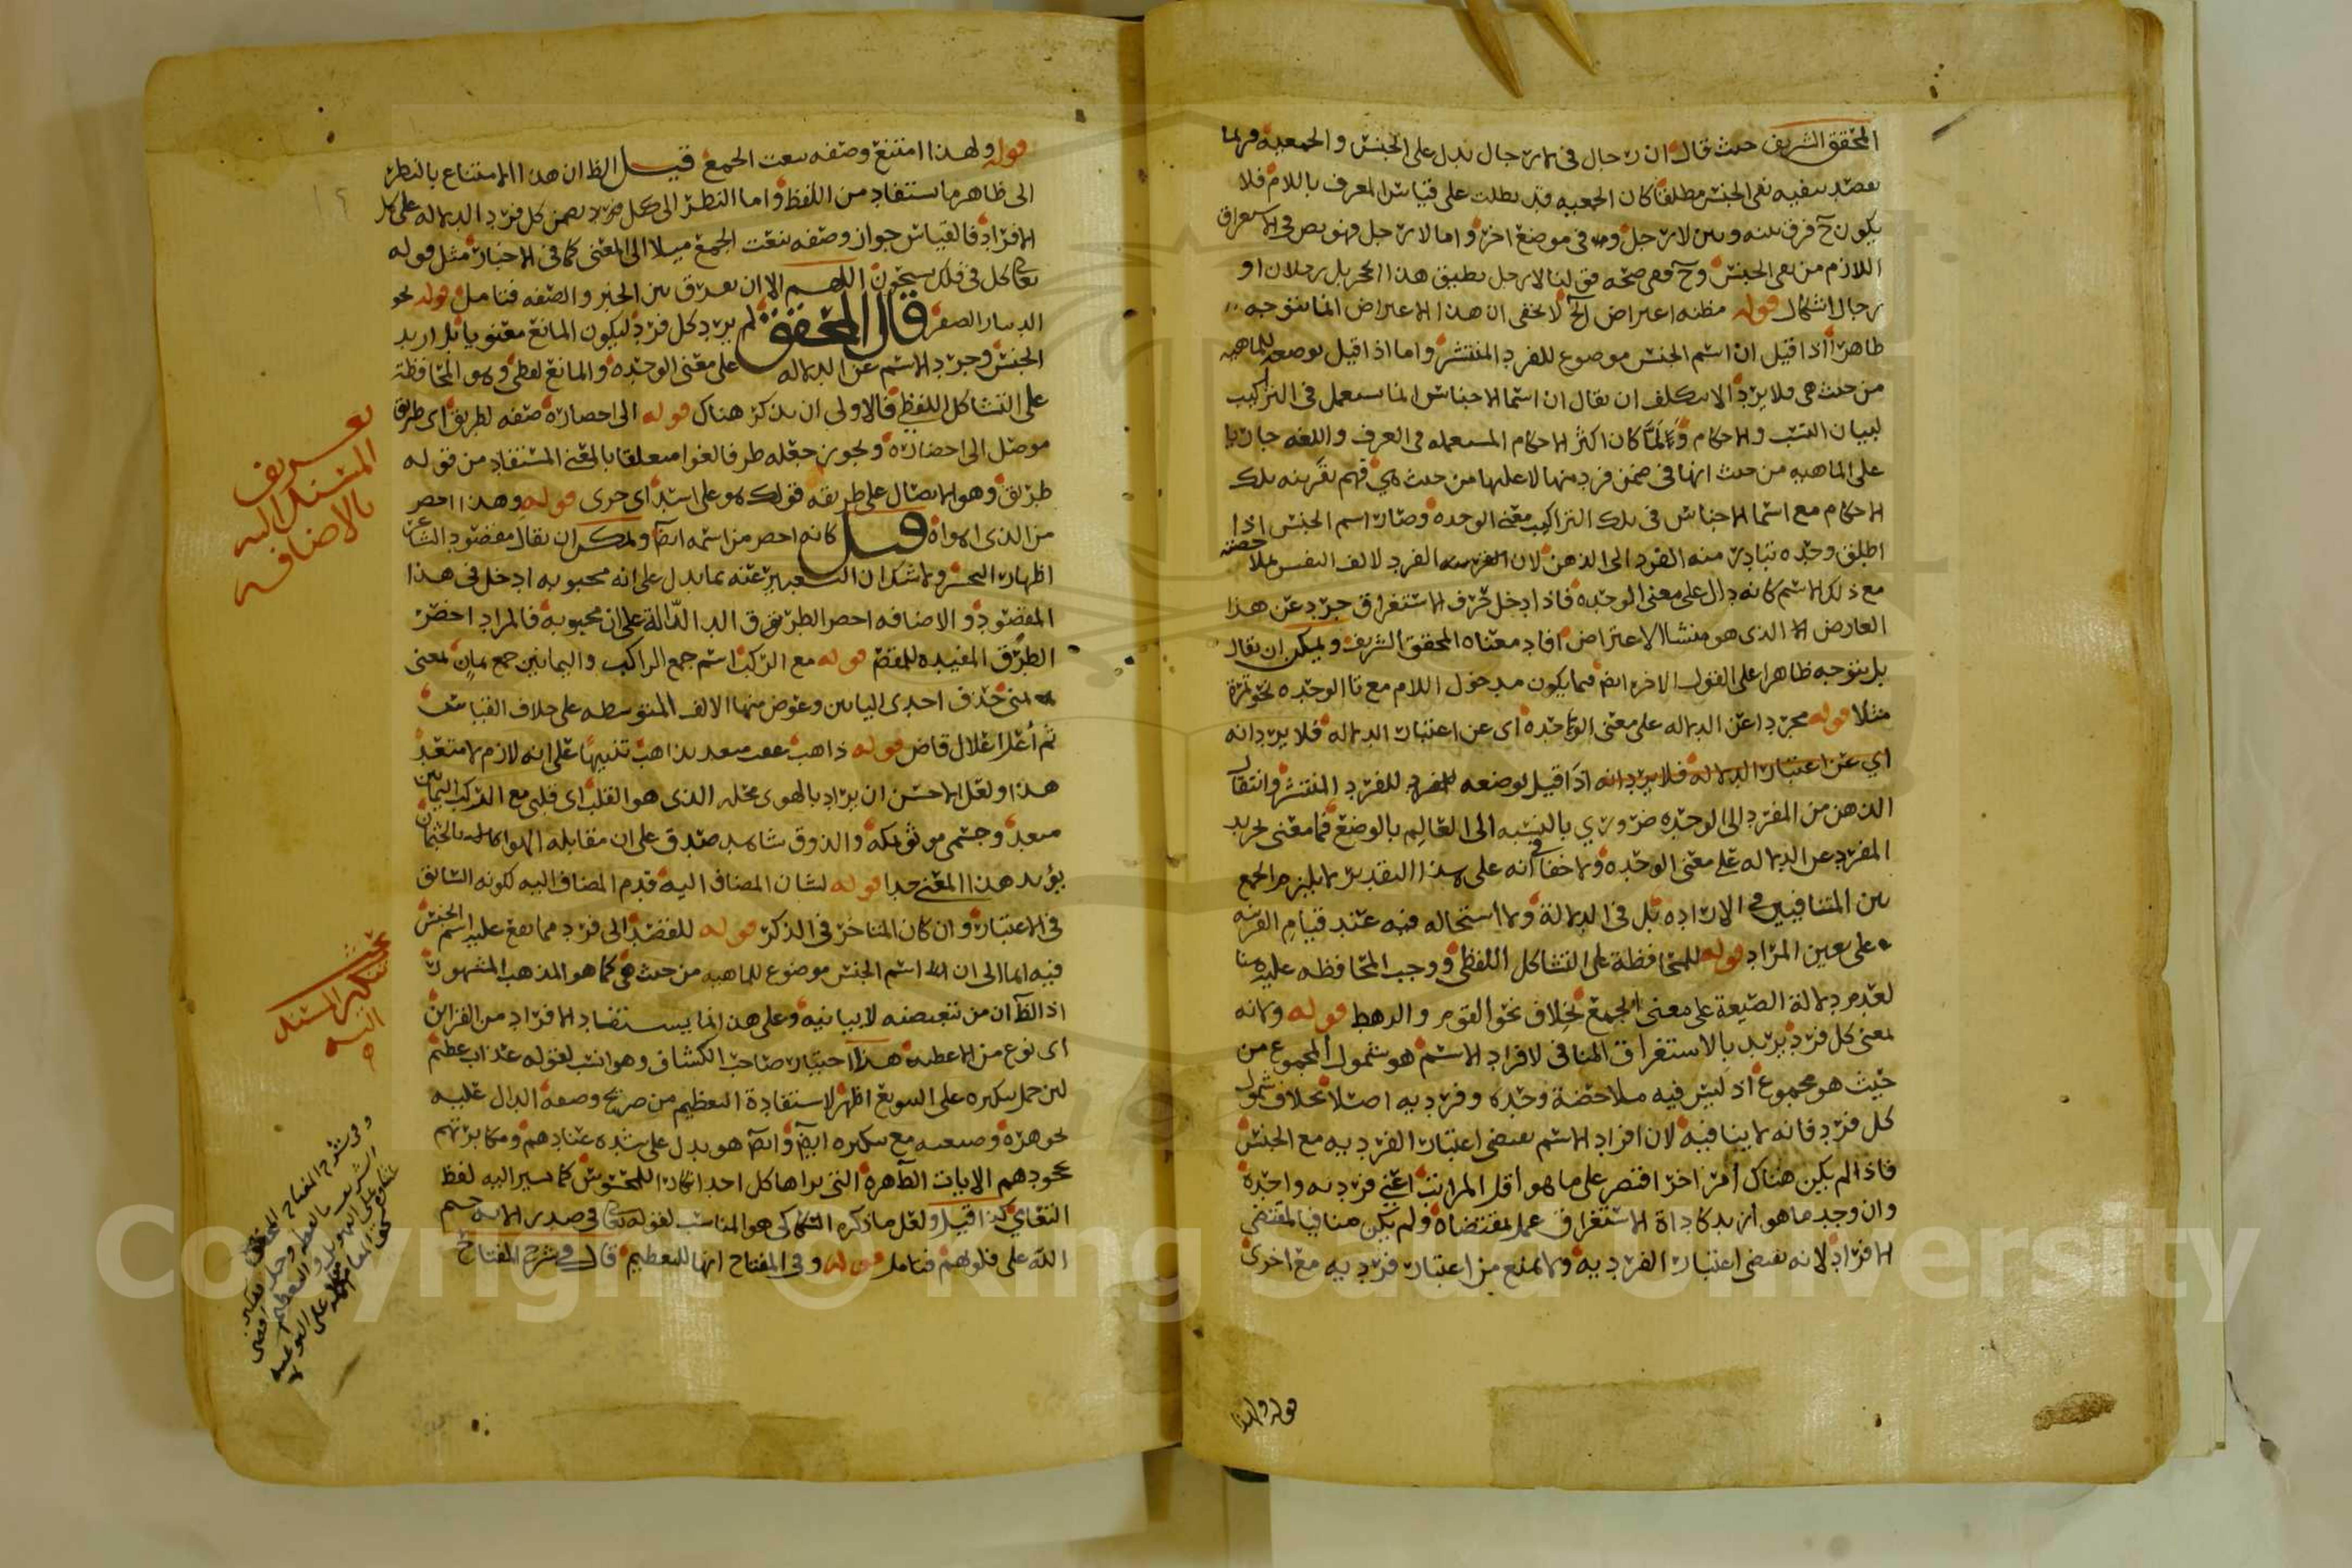 المحقق الشريف حيث قال ان رجال في لا رجال يدل على الجنس والجمعية فربما
يقصد بنفيه نفي الجنس مطلقا كان الجمعية قد بطلت على قياس المعرف باللام فلا
يكون ح فرق بينه وبين لا رجل في موضع اخر واما لا رجل فهو نص في الاستغراق
اللازم من نفي الجنس وح ففي صحة قولنا لا رجل بطبق هذا الحجر بل رجلان او
رجال اشكال قوله مظنه اعتراض الخ لا يخفى ان هذا الاعتراض انما يتوجه
ظاهرا اذا قيل ان اسم الجنس موضوع للفرد المنتشر واما اذا قيل بوضعه للماهيه
من حيث هي فلا يرد الا بتكلف ان يقال ان اسما الاجناس انما يستعمل في التراكيب
لبيان النسب والاحكام ولما كان اكثر الاحكام المستعمله في العرف واللغه جاريا
على الماهيه من حيث انها في ضمن فرد منها لا عليها من حيث هي فهم بقرينه تلك
الاحكام مع اسما الاجناس في تلك التراكيب معنى الوحده وصار اسم الجنس اذا
اطلق وحده تبادر منه الفرد الى الذهن لان الفرد لالف النفس بملاحضته
مع ذلك الاسم كانه دال على معنى الوحده فاذا ادخل حرف الاستغراق جرد عن هذا
العارض الذي هو منشا الاعتراض افاد معناه المحقق الشريف ويمكن ان يقال
بل يتوجه ظاهرا على القول الاخر ايضا فيما يكون مدخول اللام مع تا الوحده نحو تمرة
مثلا قوله مجردا عن الدلاله على معنى الوحده اي عن اعتبار الدلاله فلا يرد انه
اي عن اعتبار الدلاله فلا يرد انه اذا قيل بوضعه للفرد المنتشر وانتقال
الذهن من المفرد الى الوحده ضروري بالنسبه الى العالم بالوضع فما معنى تجريد
المفرد عن الدلاله على معنى الوحده ولا خفا في انه على هذا التقدير لا يلزم الجمع
بين المتنافيين في الاراده بل في الدلالة ولا استحاله فيه عند قيام القرينه
على تعيين المراد قوله للمحافظة على التشاكل اللفظي ووجب المحافظه عليه هنا
لعدم دلالة الصيغة على معنى الجمع بخلاف نحو القوم والرهط قوله ولانه
لمعنى كل فرد يريد بالاستغراق المنافي لافراد الاسم هو شمول المجموع من
حيث هو مجموع اذ ليس فيه ملاحضة وحده وفرديه اصلا بخلاف شمول
كل فرد فانه لا ينافيه لان افراد الاسم يقتضي اعتبار الفرديه مع الجنس
فاذا لم يكن هناك امر اخر اقتصر على ما هو اقل المراتب اعني فرديه واحدة
وان وجد ما هو ازيد كاداة الاستغراق عمل بمقتضاه ولم يكن منافيا لمقتضى
الافراد لانه يقتضي اعتبار الفرديه ولا يمنع من اعتبار فرديه مع اخرى
قوله ولهذا
قوله ولهذا امتنع وصفه بنعت الجمع قيل الظ ان هذا الامتناع بالنظر
الى ظاهر ما يستفاد من اللفظ واما النظر الى كل فرد يضمن كل فرد الدلاله على كل
الافراد فالقياس جواز وصفه بنعت الجمع ميلا الى المعنى كما في الاخبار مثل قوله
تعالى كل في فلك يسبحون اللهم الا ان يفرق بين الخبر والصفه فتامل قوله نحو
الدينار الصفر قال المحقق لم يرد كل فرد ليكون المانع معنويا بل اريد
الجنس وجرد الاسم عن الدلاله على معنى الوحده والمانع لفظي وهو المحافظة
على التشاكل اللفظي فالاولى ان يذكر هناك قوله الى احضاره صفه لطريق اي طريق
موصل الى احضاره ويجوز جعله ظرفا لغوا متعلقا بالمعنى المستفاد من قوله
طريق وهو الايصال على طريقه قولك هو على اسد اي جرى قوله وهذا اخصر
من الذي اهواه قيل كانه اخصر من اسمه ايضا ويمكن ان يقال مقصود الشاعر
اظهار التحسر ولا شك ان التعبير عنه بما يدل على انه محبوبه ادخل في هذا
المقصود والاضافه اخصر الطريق الدالة على ان محبوبه فالمراد اخصر
الطرق المفيده للمقصد قوله مع الركب اسم جمع الراكب واليمانين جمع يمان بمعنى
يمنى حذف احدى اليائين وعوض منها الالف المتوسطه على خلاف القياس
ثم أعل اعلال قاض قوله ذاهب عقب مصعد بذاهب تنبيها على انه لازم لا متعد
هذا ولعل الاحسن ان يراد بالهوى محله الذي هو القلب اي قلبي مع الركب اليمانين
مصعد وجسمي موثق بمكه والذوق شاهد صدق على ان مقابله الهوا بالجثمان
يؤيد هذا المعنى جدا قوله لشان المضاف اليه قدم المضاف اليه لكونه السابق
في الاعتبار وان كان المتاخر في الذكر قوله للقصد الى فرد مما يقع عليه اسم الجنس
فيه ايما الى ان اسم الجنس موضوع للماهيه من حيث هي كما هو المذهب المشهور
اذ الظ ان من تبعيضيه لا بيانيه وعلى هذا انما يستفاد الافراد من القرائن
اي نوع من الاغطيه هذا اختيار صاحب الكشاف وهو انسب لقوله عذاب عظيم
لان حمل تنكيره على التنويع اظهر لاستفادة التعظيم من صريح وصفه الدال عليه
بجوهره وصيغته مع تنكيره ايضا وايضا هو يدل على شده عنادهم ومكابرتهم
بجحودهم الايات الظاهرة التي يراها كل احد انكارا للمحسوس كما يشير اليه لفظ
التعامي كذا قيل ولعل ما ذكره السكاكي هو المناسب لقوله تعالى في صدر الايه ختم
الله على قلوبهم فتامل قوله وفي المفتاح انها للتعظيم قال في شرح المفتاح
تعريف
المسند اليه
بالاضافه
بحث
تنكير المسند
اليه
وفي شرح المفتاح